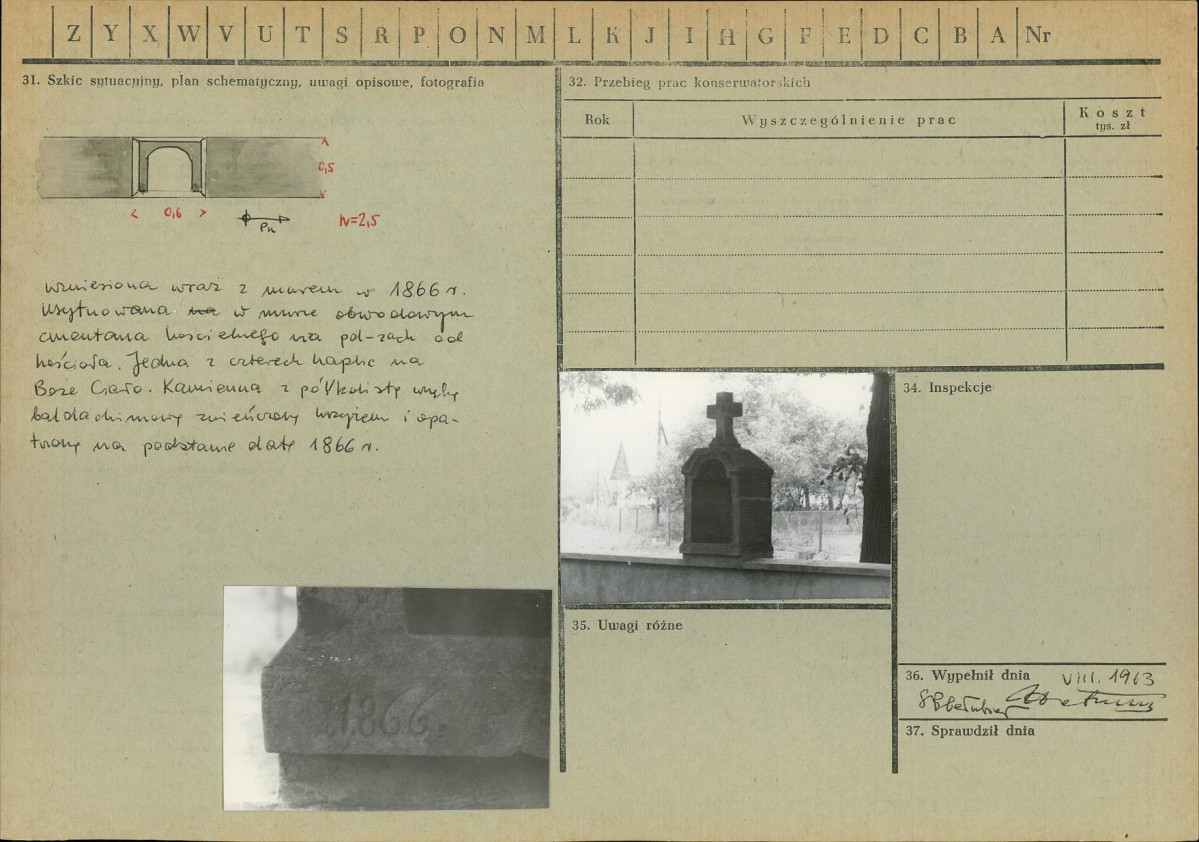 Z Y X W V U T S R P O N M L K J I H G F E D C B A Nr
31. Szkic sytuacyjny, plan schematyczny, uwagi opisowe, fotografia
0,5
0,6
Pn
h=2,5
wzniesiona wraz z murem w 1866 r.
Usytuowana na w murze obwodowym
cmentarza kościelnego na płd-zach od
kościoła. Jedna z czterech kaplic na
Boże Ciało. Kamienna z półkolistą wnęką
baldachimową zwieńczoną krzyżem i opa-
trzoną na podstawie datą 1866 r.
1866
32. Przebieg prac konserwatorskich
Rok
Wyszczególnienie prac
Koszt
tys. zł
34. Inspekcje
35. Uwagi różne
36. Wypełnił dnia VIII. 1963
37. Sprawdził dnia